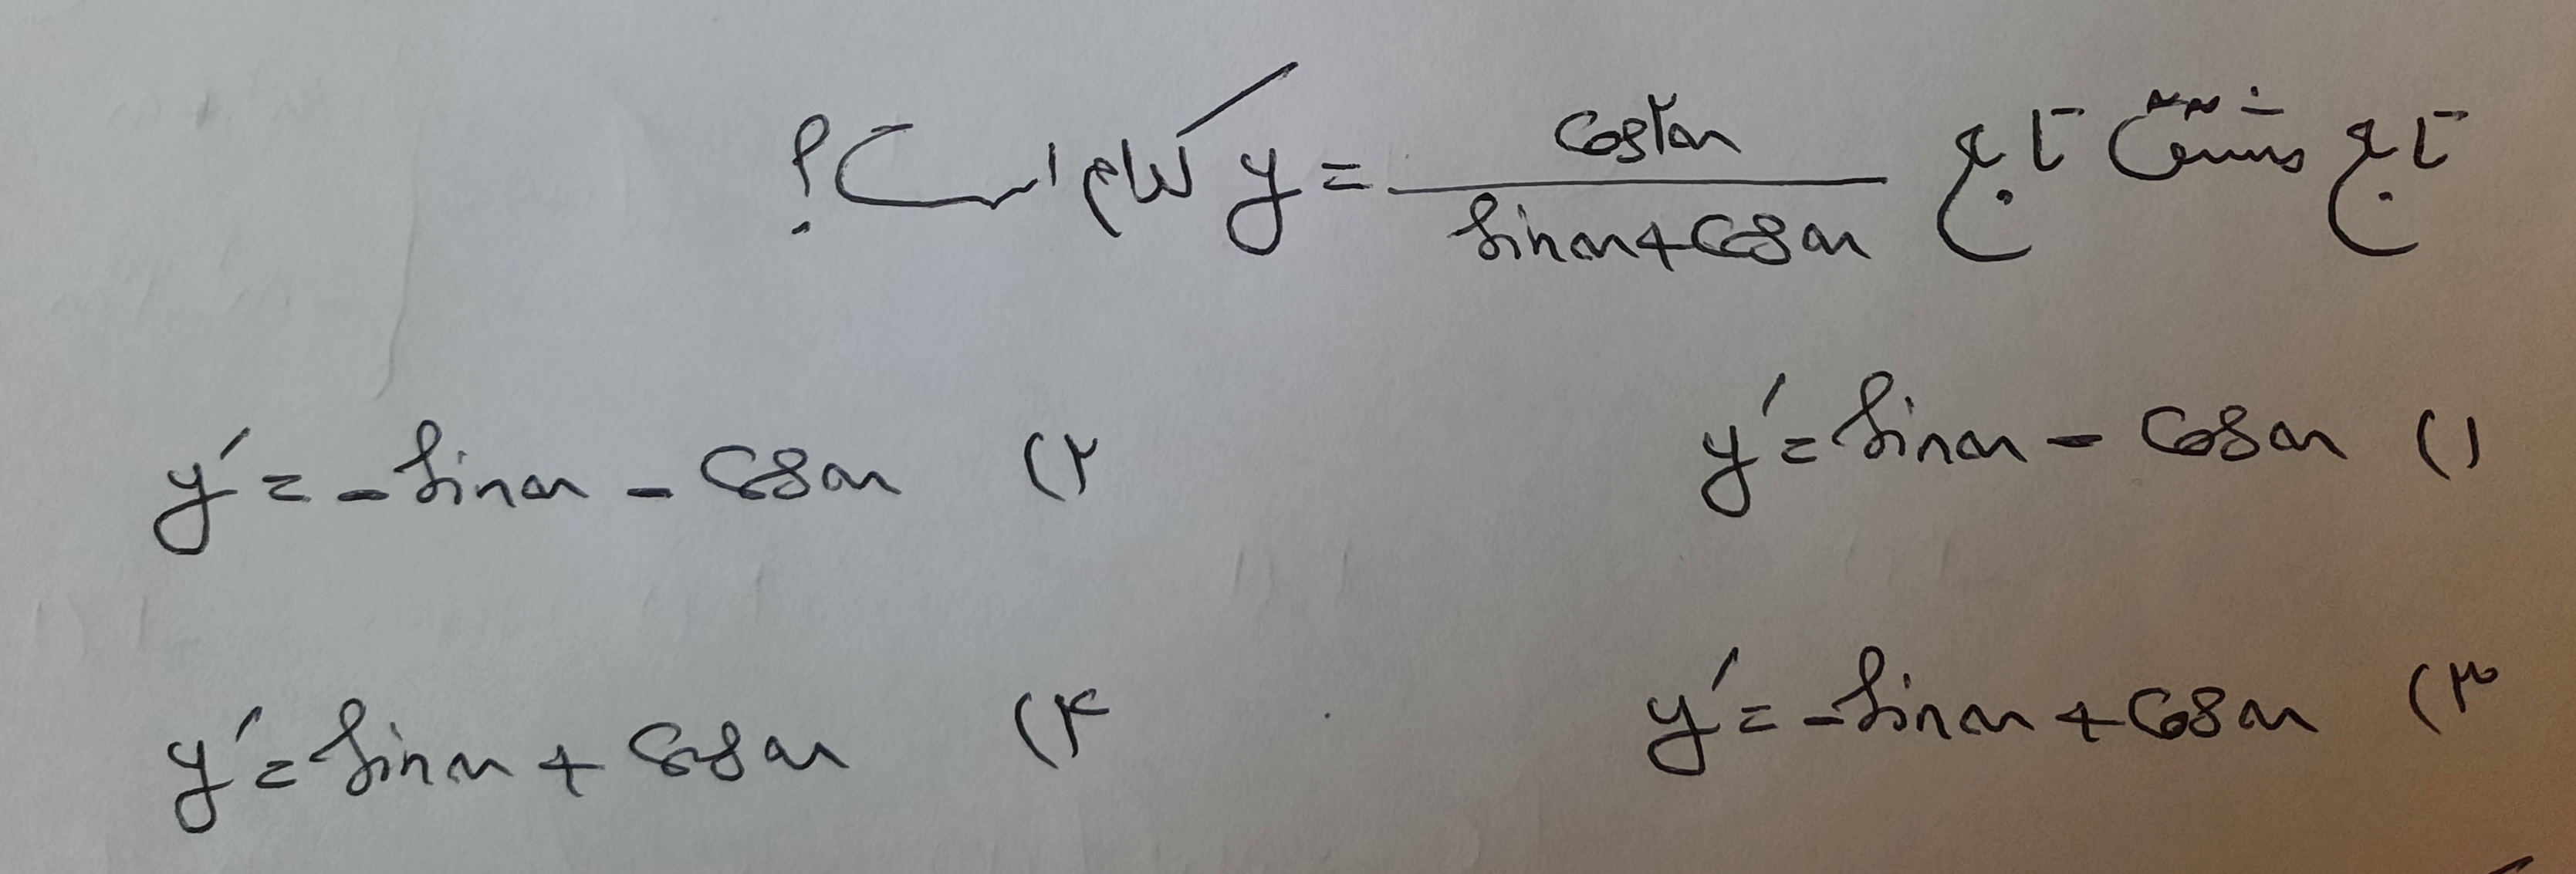 تابع مشتق تابع y = cos۲x / (sinx + cosx) کدام است؟
۱) y′ = sinx - cosx
۲) y′ = -sinx - cosx
۳) y′ = -sinx + cosx
۴) y′ = sinx + cosx